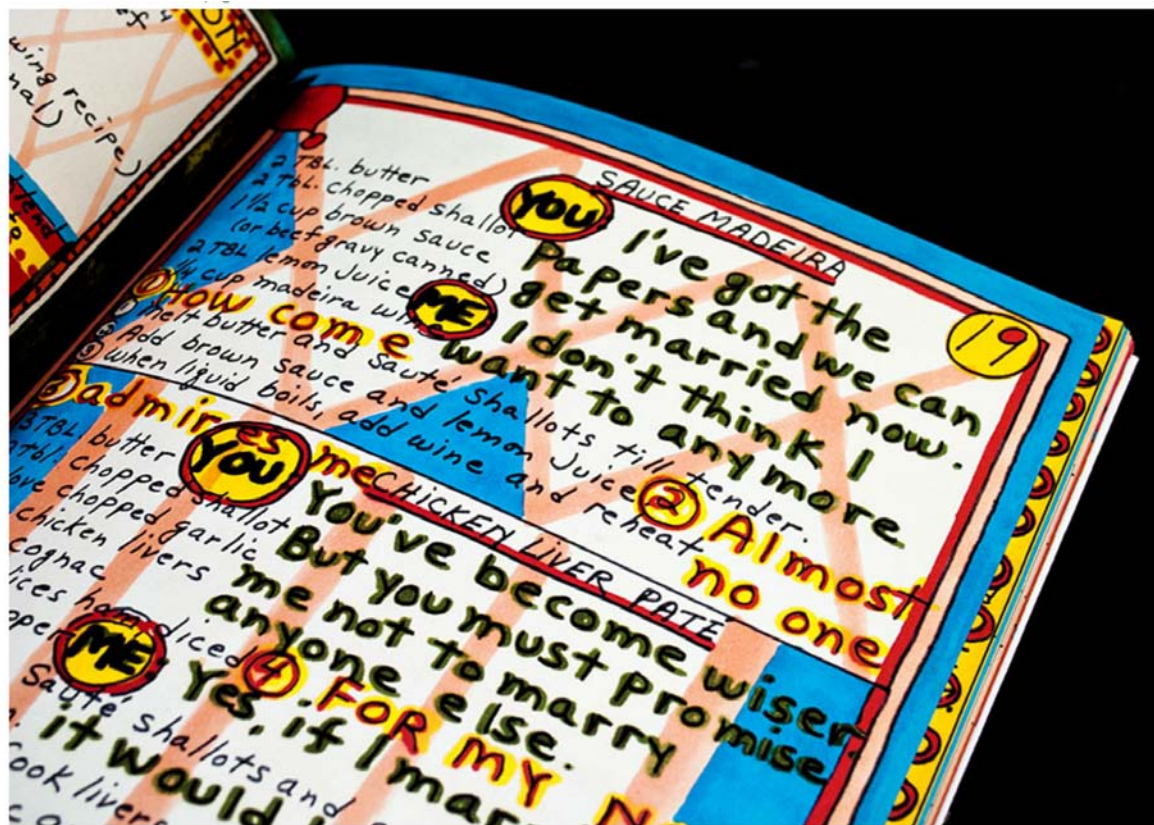 ON
wing recipe)
nal)
SAUCE MADEIRA
19
2 TBL. butter
2 TBL. chopped shallot
1 1/2 cup brown sauce
(or beef gravy canned)
2 TBL lemon juice
1/4 cup madeira
① melt butter and sauté shallots till tender.
② Add brown sauce and lemon juice
③ when liquid boils, add wine and reheat
YOU
I've got the
Papers and we can
get married now.
ME
I don't think I
want to anymore
① How come
② Almost
no one
③ admires me
CHICKEN LIVER PATE
3 TBL. butter
TBL. chopped shallot
love chopped garlic
chicken livers
cognac
ices ham diced
Sauté shallots and
ook livers
YOU
You've become wiser.
But you must promise
me not to marry
anyone else.
ME
Yes, if I mar
it would
④ FOR MY